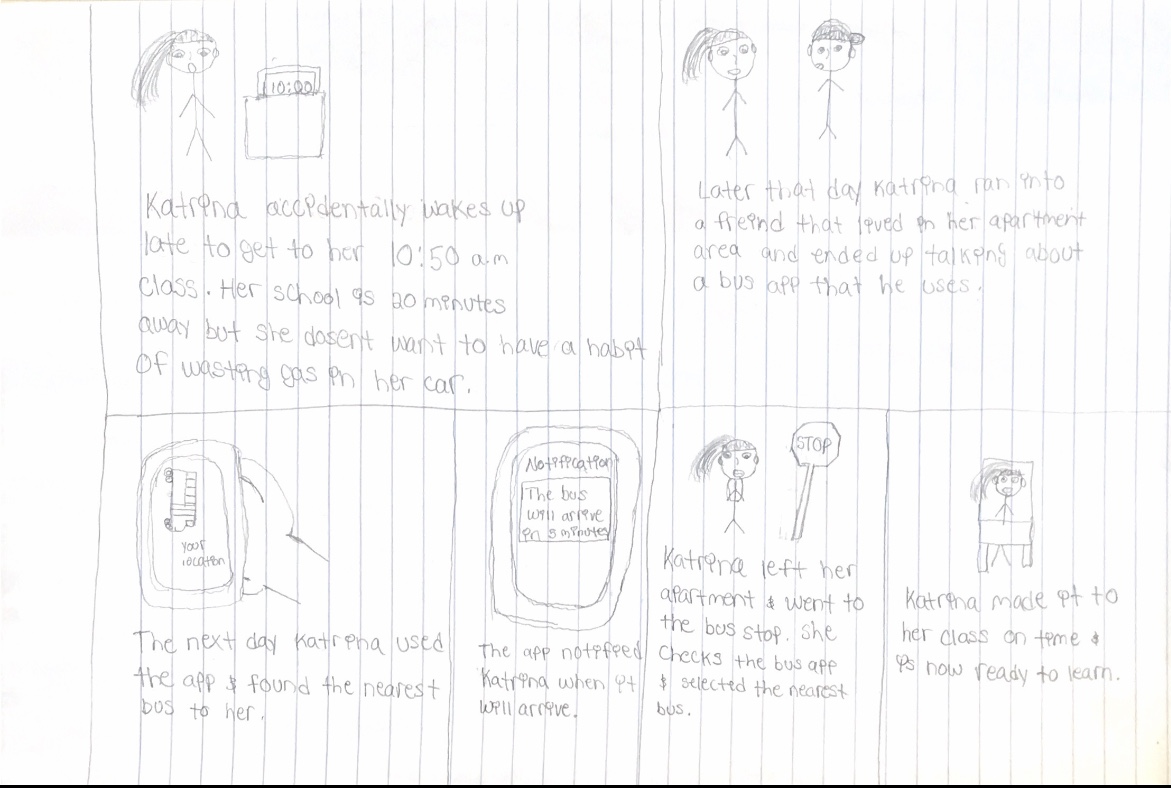 10:00
Katrina accidentally wakes up
late to get to her 10:50 a.m
class. Her school is 20 minutes
away but she dosent want to have a habit
of wasting gas in her car.
Later that day Katrina ran into
a freind that lived in her apartment
area and ended up talking about
a bus app that he uses.
your
location
The next day Katrina used
the app & found the nearest
bus to her.
Notification
The bus
will arrive
in 5 minutes
The app notified
Katrina when it
will arrive.
STOP
Katrina left her
apartment & went to
the bus stop. She
checks the bus app
& selected the nearest
bus.
Katrina made it to
her class on time &
is now ready to learn.